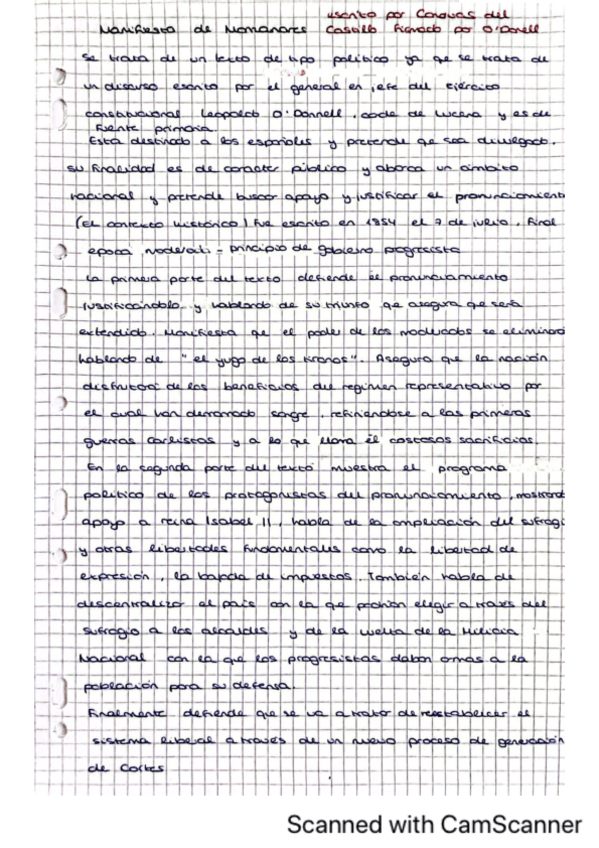 escrito por Canovas del
Manifiesto de Manzanares Castillo firmado por O'Donell
Se trata de un texto de tipo político ya que se trata de
un discurso escrito por el general en jefe del ejército
constitucional Leopoldo O'Donnell, conde de Lucena y es de
fuente primaria.
Esta destinado a los españoles y pretende que sea divulgado.
su finalidad es de caracter público y abarca un ámbito
nacional y pretende buscar apoyo y justificar el pronunciamient
(El contexto histórico) Fue escrito en 1854 el 7 de julio. Final
epoca moderad. - principio de gobierno progresista
La primera parte del texto defiende el pronunciamiento
justificandolo y hablando de su triunfo que asegura que será
extendido. Manifiesta que el poder de los moderados se eliminará
hablando de "el yugo de los tiranos". Asegura que la nación
disfrutará de los beneficios del regimen representativo por
el cual han derramado sangre, refiriendose a las primeras
guerras carlistas y a lo que llama él costosos sacrificios.
En la segunda parte del texto muestra el programa
político de los protagonistas del pronunciamiento, mostrand
apoyo a reina Isabel II, habla de la ampliación del sufragi
y otras libertades fundamentales como la libertad de
expresión, la bajada de impuestos. También habla de
descentralizar el país con la que podrían elegir a traves del
sufragio a los alcaldes y de la vuelta de la Milicia
Nacional con la que los progresistas daban armas a la
población para su defensa.
Finalmente defiende que se va a tratar de reestablecer el
sistema liberal a través de un nuevo proceso de generación
de Cortes
Scanned with CamScanner